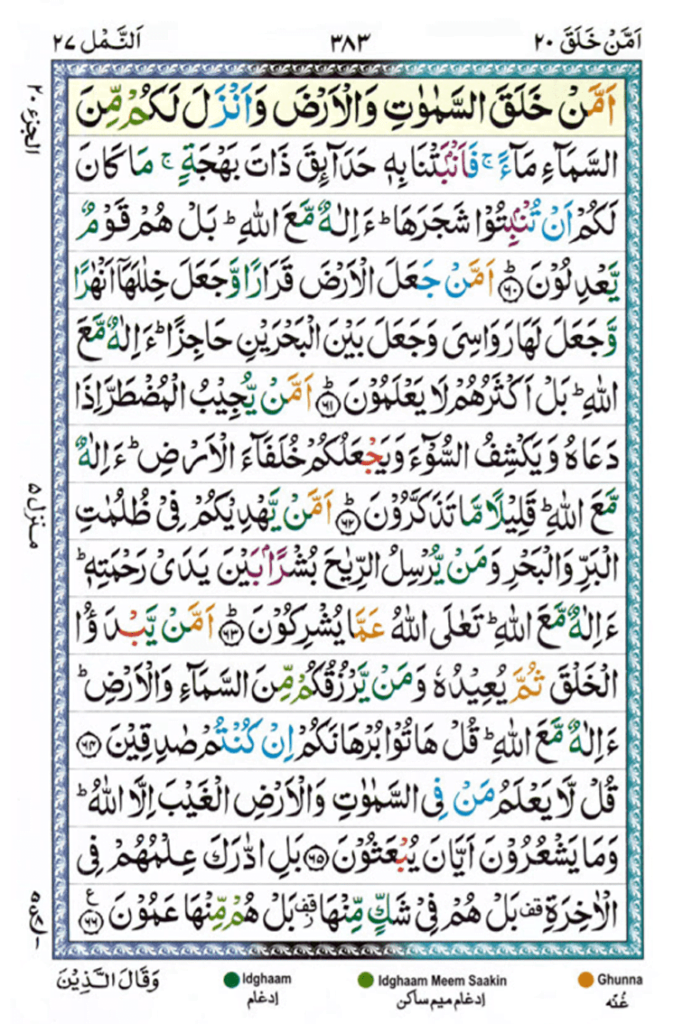 اَمَّنْ خَلَقَ ٢٠ ٣٨٣ اَلنَّمْل ٢٧
الجزء ٢٠
اَمَّنْ خَلَقَ السَّمٰوٰتِ وَالْاَرْضَ وَاَنْزَلَ لَكُمْ مِّنَ
السَّمَآءِ مَآءً ۚ فَاَنْۢبَتْنَا بِهٖ حَدَآئِقَ ذَاتَ بَهْجَةٍ ۚ مَا كَانَ
لَكُمْ اَنْ تُنْۢبِتُوْا شَجَرَهَا ؕ ءَاِلٰهٌ مَّعَ اللّٰهِ ؕ بَلْ هُمْ قَوْمٌ
يَّعْدِلُوْنَ ؕ‏﴿۶۰﴾ اَمَّنْ جَعَلَ الْاَرْضَ قَرَارًا وَّجَعَلَ خِلٰلَهَاۤ اَنْهٰرًا
وَّجَعَلَ لَهَا رَوَاسِىَ وَجَعَلَ بَيْنَ الْبَحْرَيْنِ حَاجِزًا ؕ ءَاِلٰهٌ مَّعَ
اللّٰهِ ؕ بَلْ اَكْثَرُهُمْ لَا يَعْلَمُوْنَ ؕ‏﴿۶۱﴾ اَمَّنْ يُّجِيْبُ الْمُضْطَرَّ اِذَا
دَعَاهُ وَيَكْشِفُ السُّوْٓءَ وَيَجْعَلُكُمْ خُلَفَآءَ الْاَرْضِ ؕ ءَاِلٰهٌ
مَّعَ اللّٰهِ ؕ قَلِيْلًا مَّا تَذَكَّرُوْنَ ؕ‏﴿۶۲﴾ اَمَّنْ يَّهْدِيْكُمْ فِىْ ظُلُمٰتِ
الْبَرِّ وَالْبَحْرِ وَمَنْ يُّرْسِلُ الرِّيٰحَ بُشْرًۢا بَيْنَ يَدَىْ رَحْمَتِهٖ ؕ
ءَاِلٰهٌ مَّعَ اللّٰهِ ؕ تَعٰلَى اللّٰهُ عَمَّا يُشْرِكُوْنَ ؕ‏﴿۶۳﴾ اَمَّنْ يَّبْدَؤُا
الْخَلْقَ ثُمَّ يُعِيْدُهٗ وَمَنْ يَّرْزُقُكُمْ مِّنَ السَّمَآءِ وَالْاَرْضِ ؕ
ءَاِلٰهٌ مَّعَ اللّٰهِ ؕ قُلْ هَاتُوْا بُرْهَانَكُمْ اِنْ كُنْتُمْ صٰدِقِيْنَ ﴿۶۴﴾
قُلْ لَّا يَعْلَمُ مَنْ فِى السَّمٰوٰتِ وَالْاَرْضِ الْغَيْبَ اِلَّا اللّٰهُ ؕ
وَمَا يَشْعُرُوْنَ اَيَّانَ يُبْعَثُوْنَ ﴿۶۵﴾ بَلِ ادّٰرَكَ عِلْمُهُمْ فِى
الْاٰخِرَةِ قف بَلْ هُمْ فِىْ شَكٍّ مِّنْهَا قف بَلْ هُمْ مِّنْهَا عَمُوْنَ ﴿۶۶﴾ ع
منزل ۵
وَقَالَ الَّذِيْنَ
Idghaam
ادغام
Idghaam Meem Saakin
ادغام میم ساکن
Ghunna
غُنّه